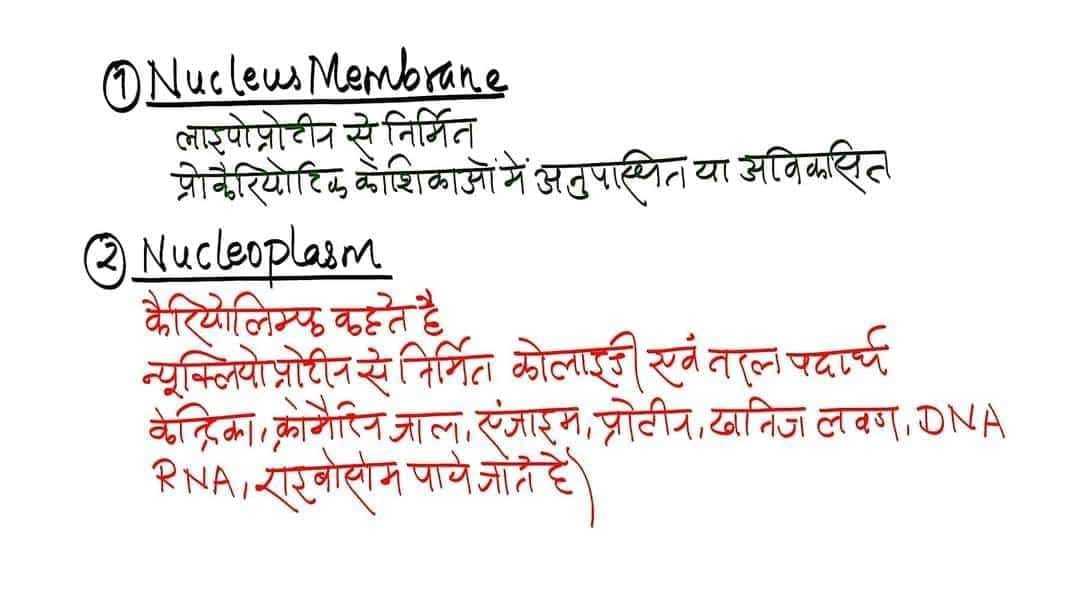 ① Nucleus Membrane
लाइपोप्रोटीन से निर्मित
प्रोकैरियोटिक कोशिकाओं में अनुपास्थित या अविकसित
② Nucleoplasm
कैरियोलिम्फ कहते है
न्यूक्लियोप्रोटीन से निर्मित कोलाइडी एवं तरल पदार्थ
केन्द्रिका, क्रोमैटिन जाल, एंजाइम, प्रोटीन, खनिज लवण, DNA
RNA, राइबोसोम पाये जाते हैं)